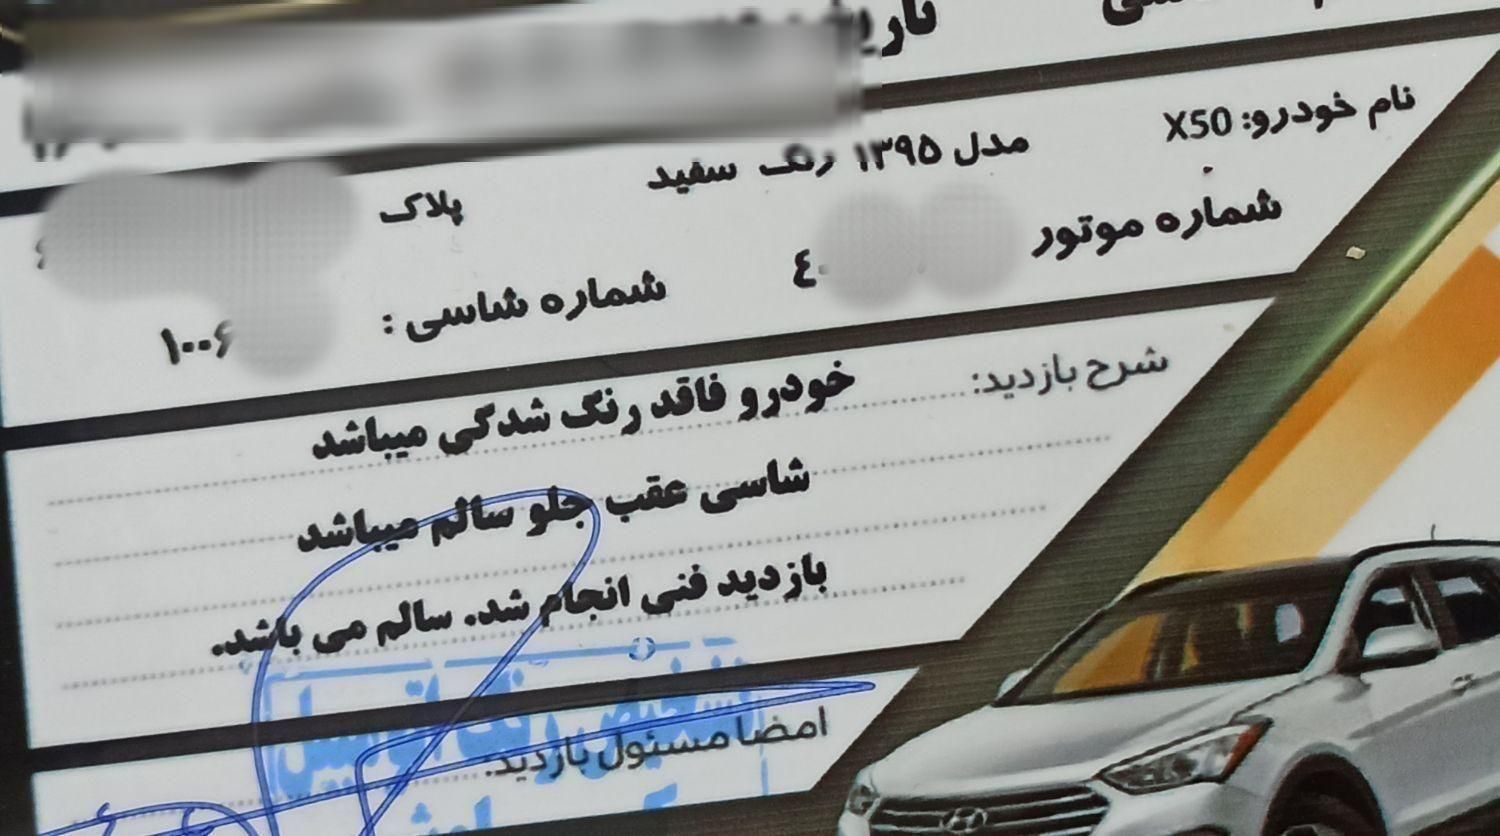 نام خودرو: X50 مدل ۱۳۹۵ رنگ سفید
شماره موتور ٤ پلاک
شماره شاسی : ۱۰۰۶
شرح بازدید: خودرو فاقد رنگ شدگی میباشد
شاسی عقب جلو سالم میباشد
بازدید فنی انجام شد. سالم می باشد.
امضا مسئول بازدید:
تشخیص رنگ اتومبیل